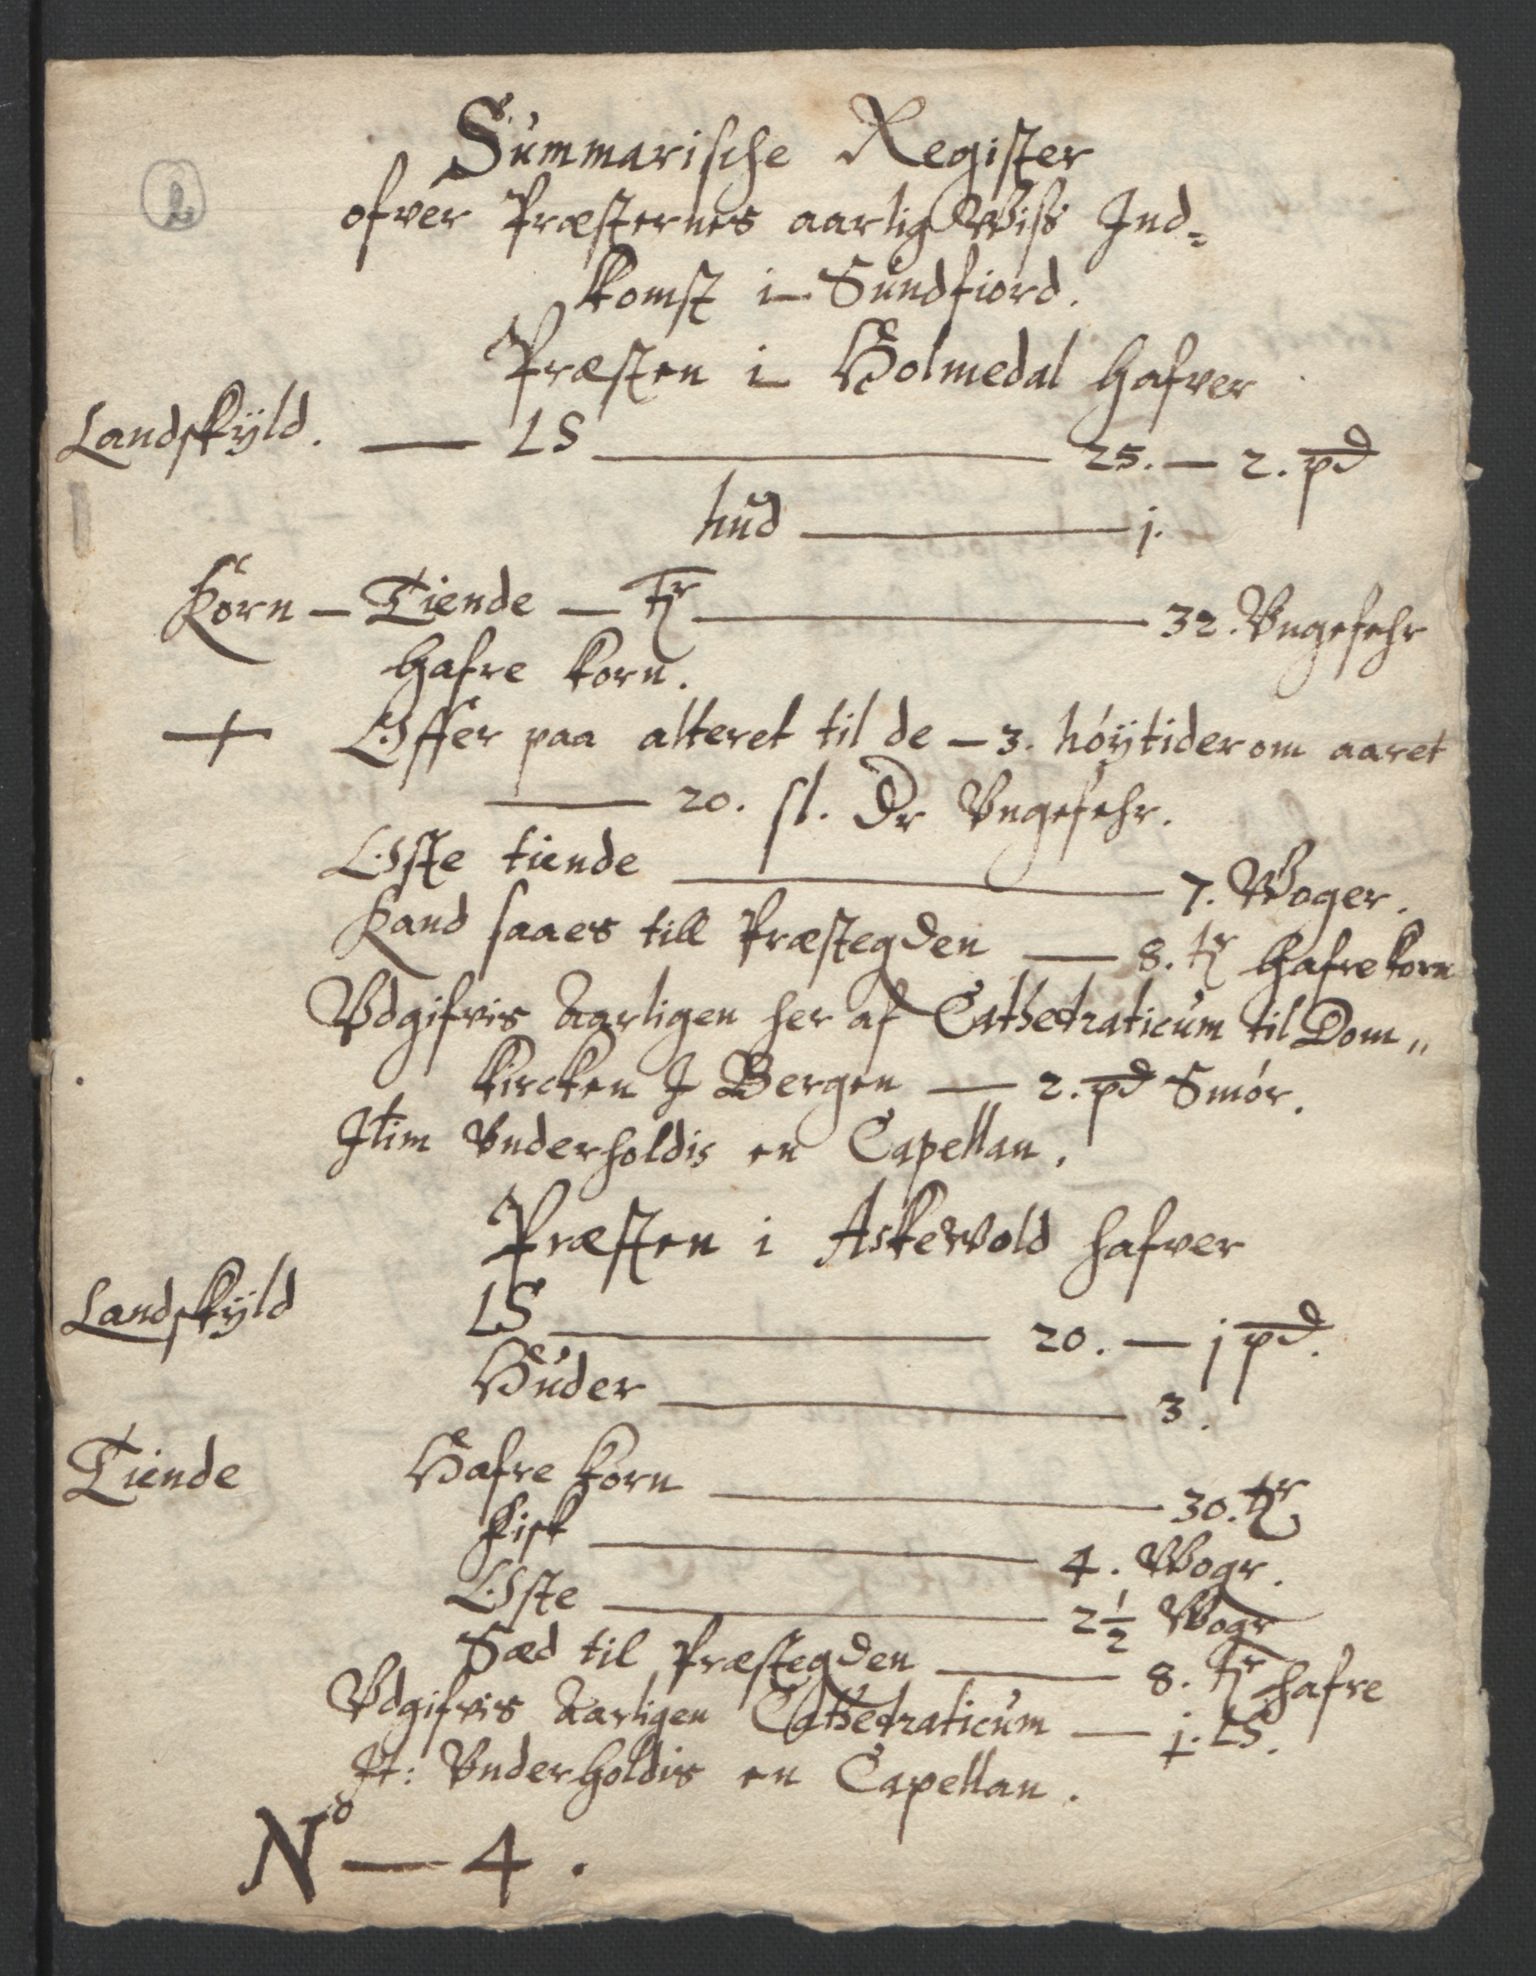 2
Summarische Register
ofver Præsternes aarlig Wiss Ind=
komst i Sundfiord.
Præsten i Holmedal hafver
Landskyld. — LS — 25. — 2. pd
hud — j.
Korn — Tiende — tr — 32. Vngefehr
hafre korn.
+ Offer paa alteret til de — 3. höytider om aaret
— 20. sl. Dr Vngefehr.
Oste tiende — 7. Woger.
Kand saaes till Præstegden — 8. tr hafre korn
Vdgifvis Aarligen her af Cathetraticum til Dom„
kircken J Bergen — 2. pd Smór.
Jtim Vnderholdis en Capellan.
Præsten i Askewold hafver
Landskyld LS — 20. — j pd.
Huder — 3.
Tiende Hafre korn — 30. tr
Fisk — 4. Wogr.
Oste — 2 1/2 Wogr
Sæd til Præstegden — 8. tr hafre
Vdgifvis Aarligen Cathetraticum — j. LS.
Jt: Vnderholdis en Capellan.
No — 4.